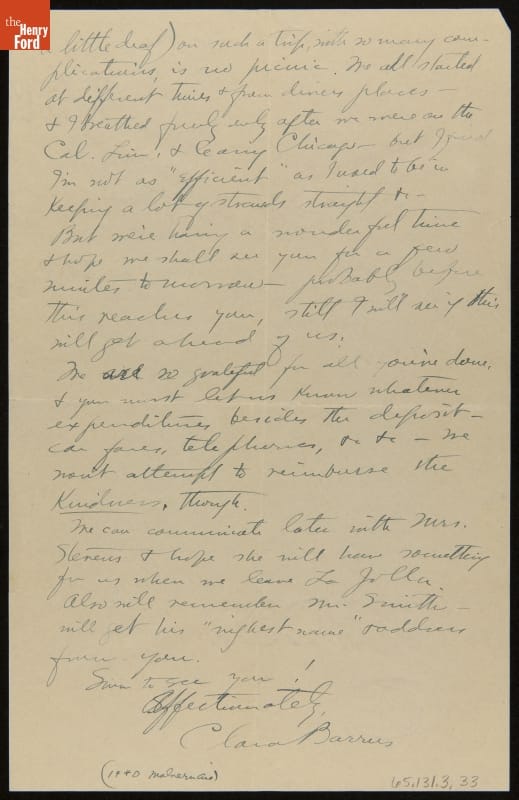 the
Henry
Ford
little deaf) on such a trip, with so many com-
plications, is no picnic. We all started
at different times & from divers places —
& I breathed freely only after we were on the
Cal. Lim. & leaving Chicago — but I find
I'm not as "efficient" as I used to be in
keeping a lot of strands straight &c —
But we're having a wonderful time
& hope we shall see you for a few
minutes to-morrow — probably before
this reaches you, still I will see if this
will get ahead of us.
We are so grateful for all you've done,
& you must let us know whatever
expenditures besides the deposit —
car fares, telephones, &c &c — We
won't attempt to reimburse the
kindness, though.
We can communicate later with Mrs.
Stevens & hope she will have something
for us when we leave La Jolla.
Also will remember Mr. Smith —
will get his "highest name" & address
from you.
Soon to see you!
Affectionately,
Clara Barrus
(1940
65.131.3, 33